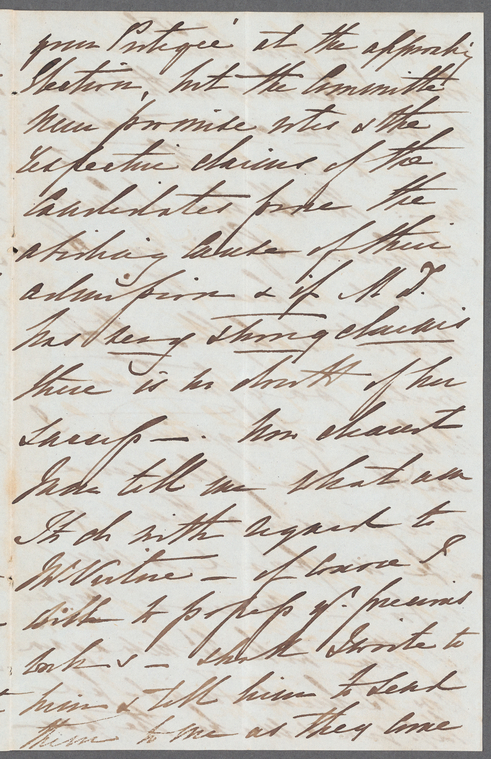 your Protégée at the approachg
Election, but the Committee
never promise votes & the
respective claims of the
Candidates form the
abiding cause of their
admission & if M T.
has very strong claims
there is no doubt of her
success —. Now dearest
Jane tell me what am
I to do with regard to
Mr Vertue — of course I
 to possess yr. precious
 — shall I write to
him & tell him to send
them to me as they come